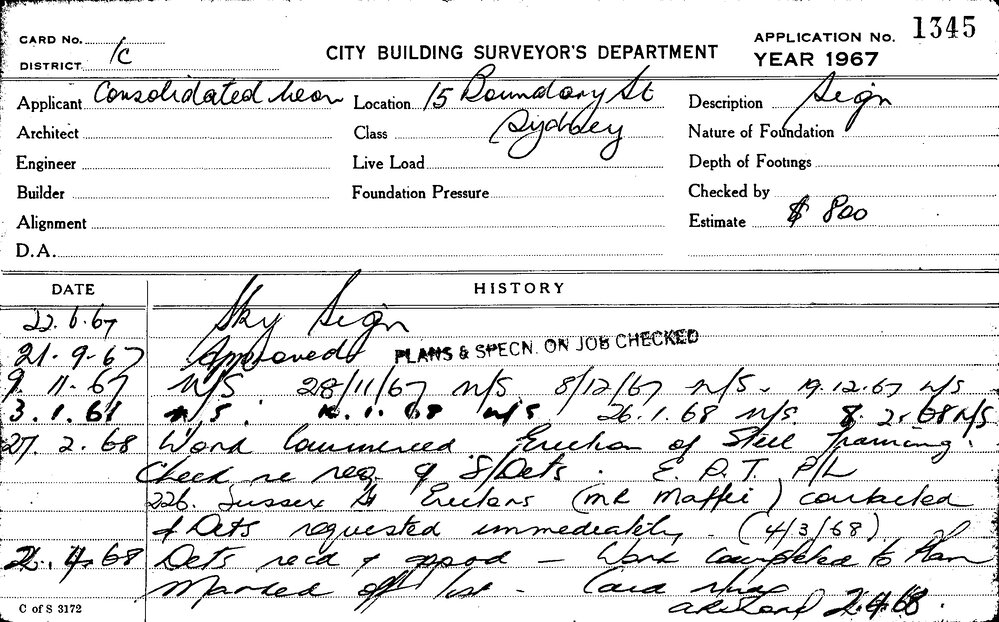 CARD No.
DISTRICT 1c
CITY BUILDING SURVEYOR'S DEPARTMENT
APPLICATION No. 1345
YEAR 1967
Applicant Consolidated Neon Location 15 Boundary St Description Sign
Architect Class Sydney Nature of Foundation
Engineer Live Load Depth of Footings
Builder Foundation Pressure Checked by
Alignment Estimate $ 800
D.A.
DATE HISTORY
22.6.67 Sky Sign
21.9.67 Approved PLANS & SPECN. ON JOB CHECKED
9.11.67 N/S 28/11/67 N/S 8/12/67 N/S. 19.12.67 N/S
3.1.68 N/S. 1.68 N/S 26.1.68 N/S. 8.2.68 N/S.
27.2.68 Work Commenced Erection of Steel framing.
Check re req. of S/Dets. E.P.T. P/L
226. Sussex St Erectors (MR Maffei) contacted
& Dets requested immediately. (4/3/68)
2.4.68 Dets recd & appod — Work completed to Plan
Marked off list - Card
2.4.68.
C of S 3172